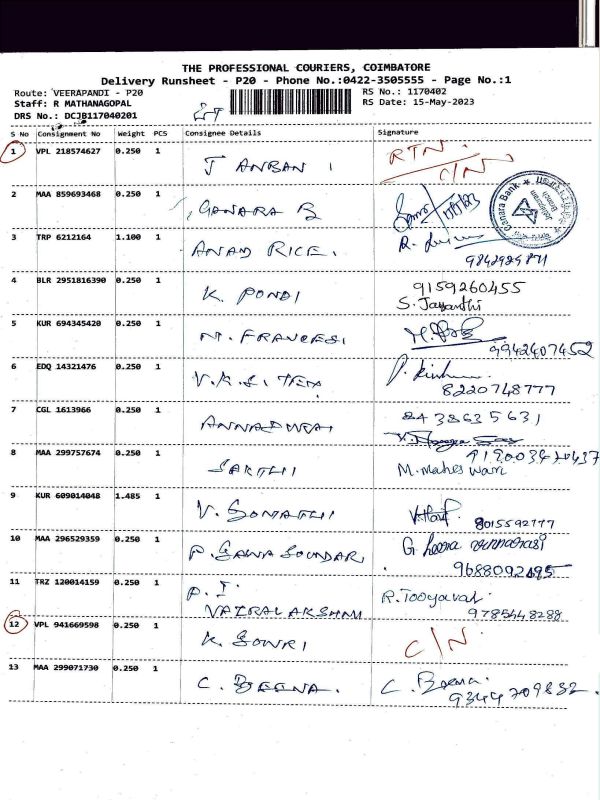 THE PROFESSIONAL COURIERS, COIMBATORE
Delivery Runsheet - P20 - Phone No.:0422-3505555 - Page No.:1
Route: VEERAPANDI - P20
RS No.: 1170402
Staff: R MATHANAGOPAL
RS Date: 15-May-2023
DRS No.: DCJB117040201
S No Consignment No Weight PCS Consignee Details Signature
1 VPL 218574627 0.250 1 J ANBAN 1 RTN. C/N
2 MAA 859693468 0.250 1 CANARA B
Canara Bank
3 TRP 6212164 1.100 1 ANAD RICE.
9842929871
4 BLR 2951816390 0.250 1 K. PONDI 9159260455
S. Jayanthi
5 KUR 694345420 0.250 1 M. FRANCESI
9942407452
6 EDQ 14321476 0.250 1 V.K.S. TEX
8220748777
7 CGL 1613966 0.250 1 ANNADURAI 8438635631
8 MAA 299757674 0.250 1 SAKTHI M. Maheswari
9 KUR 609014048 1.485 1 V. SUMATHI
8015592777
10 MAA 296529359 0.250 1 P. SOUNDAR G
9688092495
11 TRZ 120014159 0.250 1 P. I R.
VAIRALAKSHMI 9785448288
12 VPL 941669598 0.250 1 K. GOWRI C/N.
13 MAA 299071730 0.250 1 C. BEENA. C. Beena.
9344709832